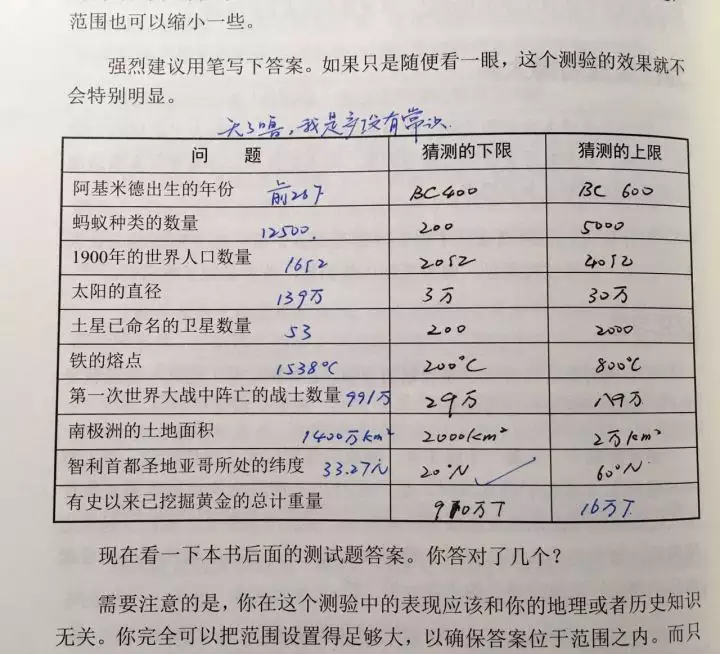 范围也可以缩小一些。
强烈建议用笔写下答案。如果只是随便看一眼，这个测验的效果就不
会特别明显。
天了噜，我是真没有常识.
问 题 猜测的下限 猜测的上限
阿基米德出生的年份 前287 BC400 BC 600
蚂蚁种类的数量 12500. 200 5000
1900年的世界人口数量 16亿 20亿 40亿
太阳的直径 139万 3万 30万
土星已命名的卫星数量 53 200 2000
铁的熔点 1538℃ 200℃ 800℃
第一次世界大战中阵亡的战士数量 991万 2万 万
南极洲的土地面积 1400万km² 2000km² 2万km²
智利首都圣地亚哥所处的纬度 33.27 20°N 60°N
有史以来已挖掘黄金的总计重量 万T 16万T
现在看一下本书后面的测试题答案。你答对了几个？
需要注意的是，你在这个测验中的表现应该和你的地理或者历史知识
无关。你完全可以把范围设置得足够大，以确保答案位于范围之内。而只